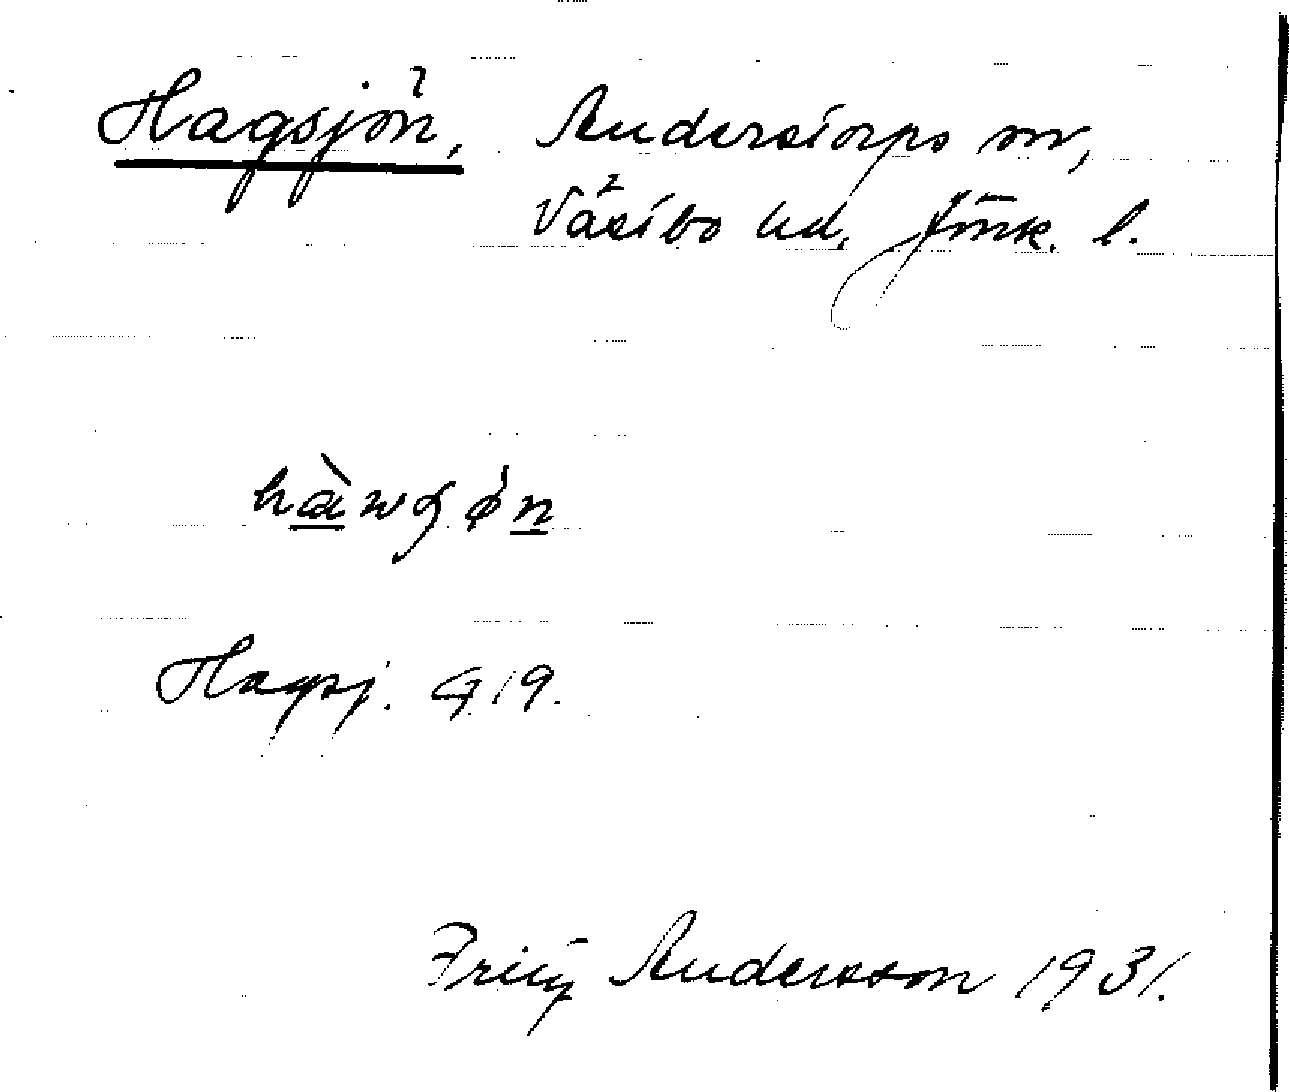 Hagsjön, Anderstorps sn,
Västbo hd, Jönk. l.
Hagsj. G 19.
Fritz Andersson 1931.